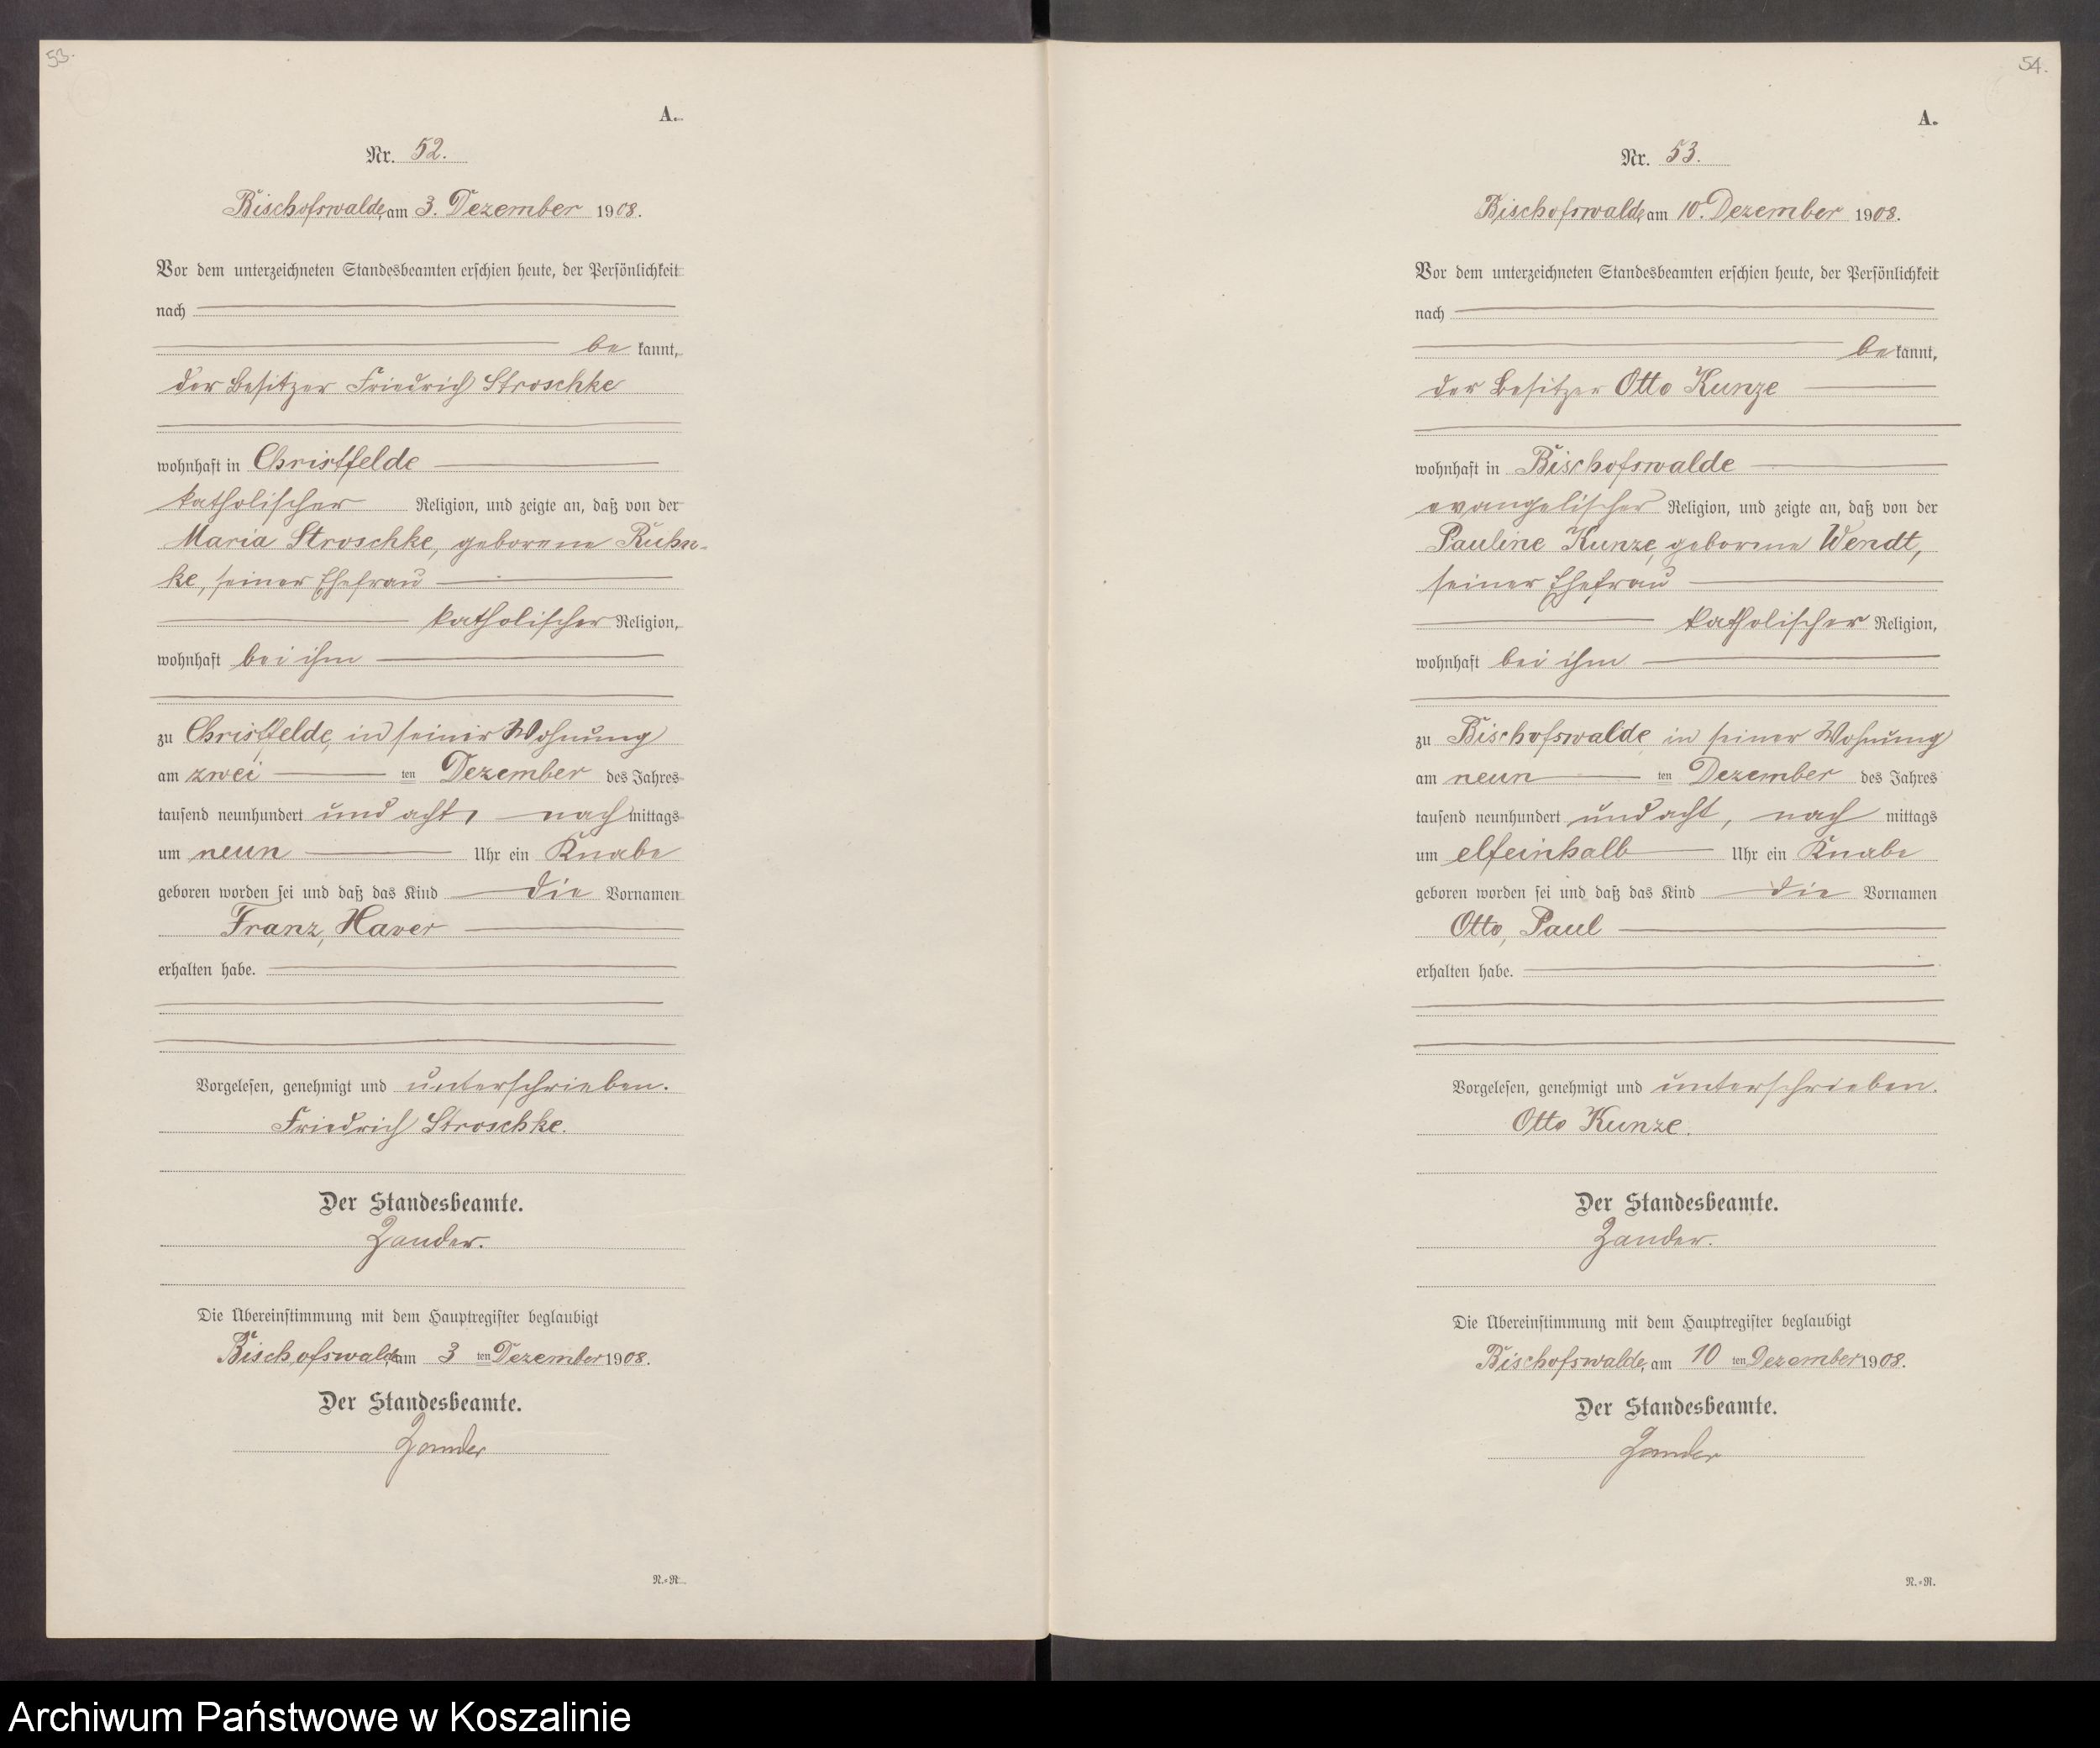 53.
A.
Nr. 52.
Bischofswalde, am 3. Dezember 1908.
Vor dem unterzeichneten Standesbeamten erschien heute, der Persönlichkeit
nach
be kannt,
der Besitzer Friedrich Stroschke
wohnhaft in Christfelde
katholischer Religion, und zeigte an, daß von der
Maria Stroschke, geborene Ruhn-
ke, seiner Ehefrau
katholischer Religion,
wohnhaft bei ihm
zu Christfelde, in seiner Wohnung
am zwei ten Dezember des Jahres
tausend neunhundert und acht, nach mittags
um neun Uhr ein Knabe
geboren worden sei und daß das Kind die Vornamen
Franz, Xaver
erhalten habe.
Vorgelesen, genehmigt und unterschrieben.
Friedrich Stroschke.
Der Standesbeamte.
Zander.
Die Übereinstimmung mit dem Hauptregister beglaubigt
Bischofswalde, am 3 ten Dezember 1908.
Der Standesbeamte.
Zander
N.=R.
54.
A.
Nr. 53.
Bischofswalde, am 10. Dezember 1908.
Vor dem unterzeichneten Standesbeamten erschien heute, der Persönlichkeit
nach
be kannt,
der Besitzer Otto Kunze
wohnhaft in Bischofswalde
evangelischer Religion, und zeigte an, daß von der
Pauline Kunze, geborene Wendt,
seiner Ehefrau
katholischer Religion,
wohnhaft bei ihm
zu Bischofswalde, in seiner Wohnung
am neun ten Dezember des Jahres
tausend neunhundert und acht, nach mittags
um elfeinhalb Uhr ein Knabe
geboren worden sei und daß das Kind die Vornamen
Otto, Paul
erhalten habe.
Vorgelesen, genehmigt und unterschrieben.
Otto Kunze.
Der Standesbeamte.
Zander.
Die Übereinstimmung mit dem Hauptregister beglaubigt
Bischofswalde, am 10 ten Dezember 1908.
Der Standesbeamte.
Zander
N.=R.
Archiwum Państwowe w Koszalinie